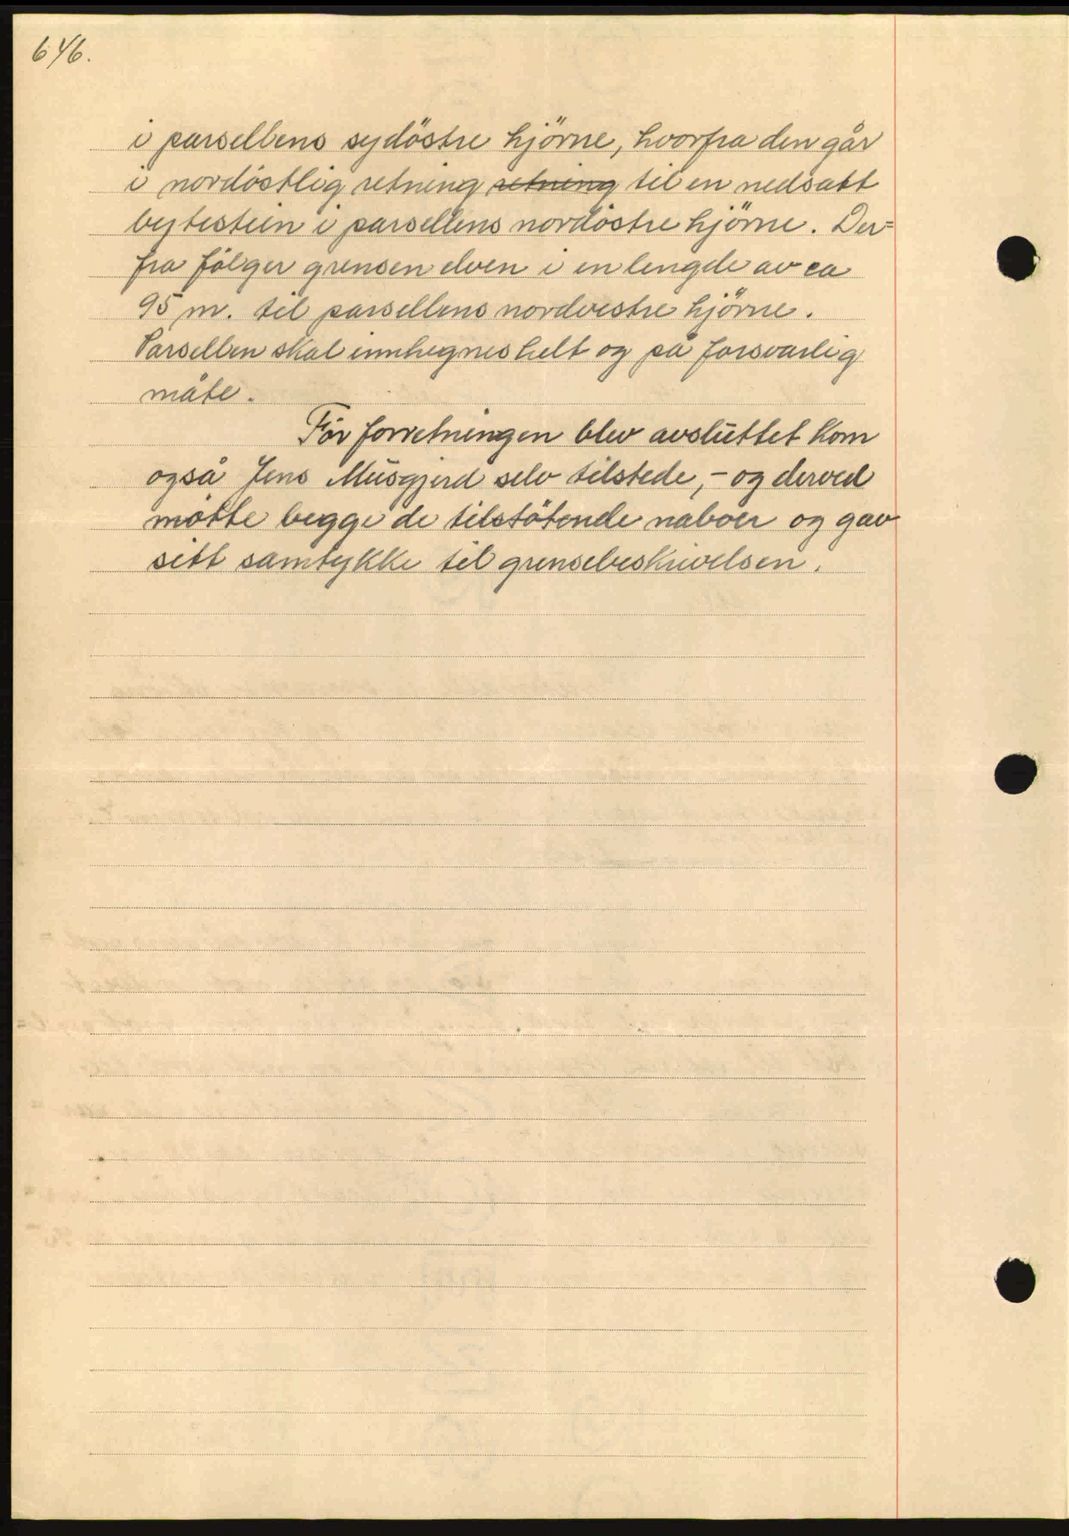 646.
i parsellens sydöstre hjörne, hvorfra den går
i nordöstlig retning retning til en nedsatt
bytestein i parsellens nordöstre hjörne. Der=
fra fölger grensen elven i en lengde av ca
95 m. til parsellens nordvestre hjörne.
Parsellen skal innhegnes helt og på forsvarlig
måte.
För forretningen blev avsluttet kom
også Jens Musgjerd selv tilstede, - og derved
mötte begge de tilstötende naboer og gav
sitt samtykke til grensebeskrivelsen.